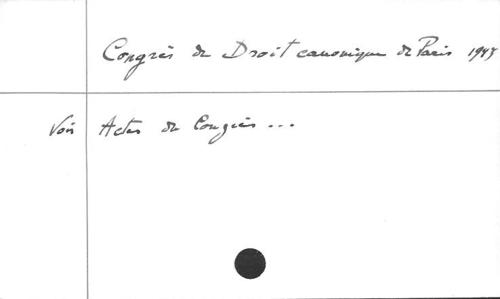 Congrès de Droit canonique de Paris 1947
Voir Actes du Congrès ...